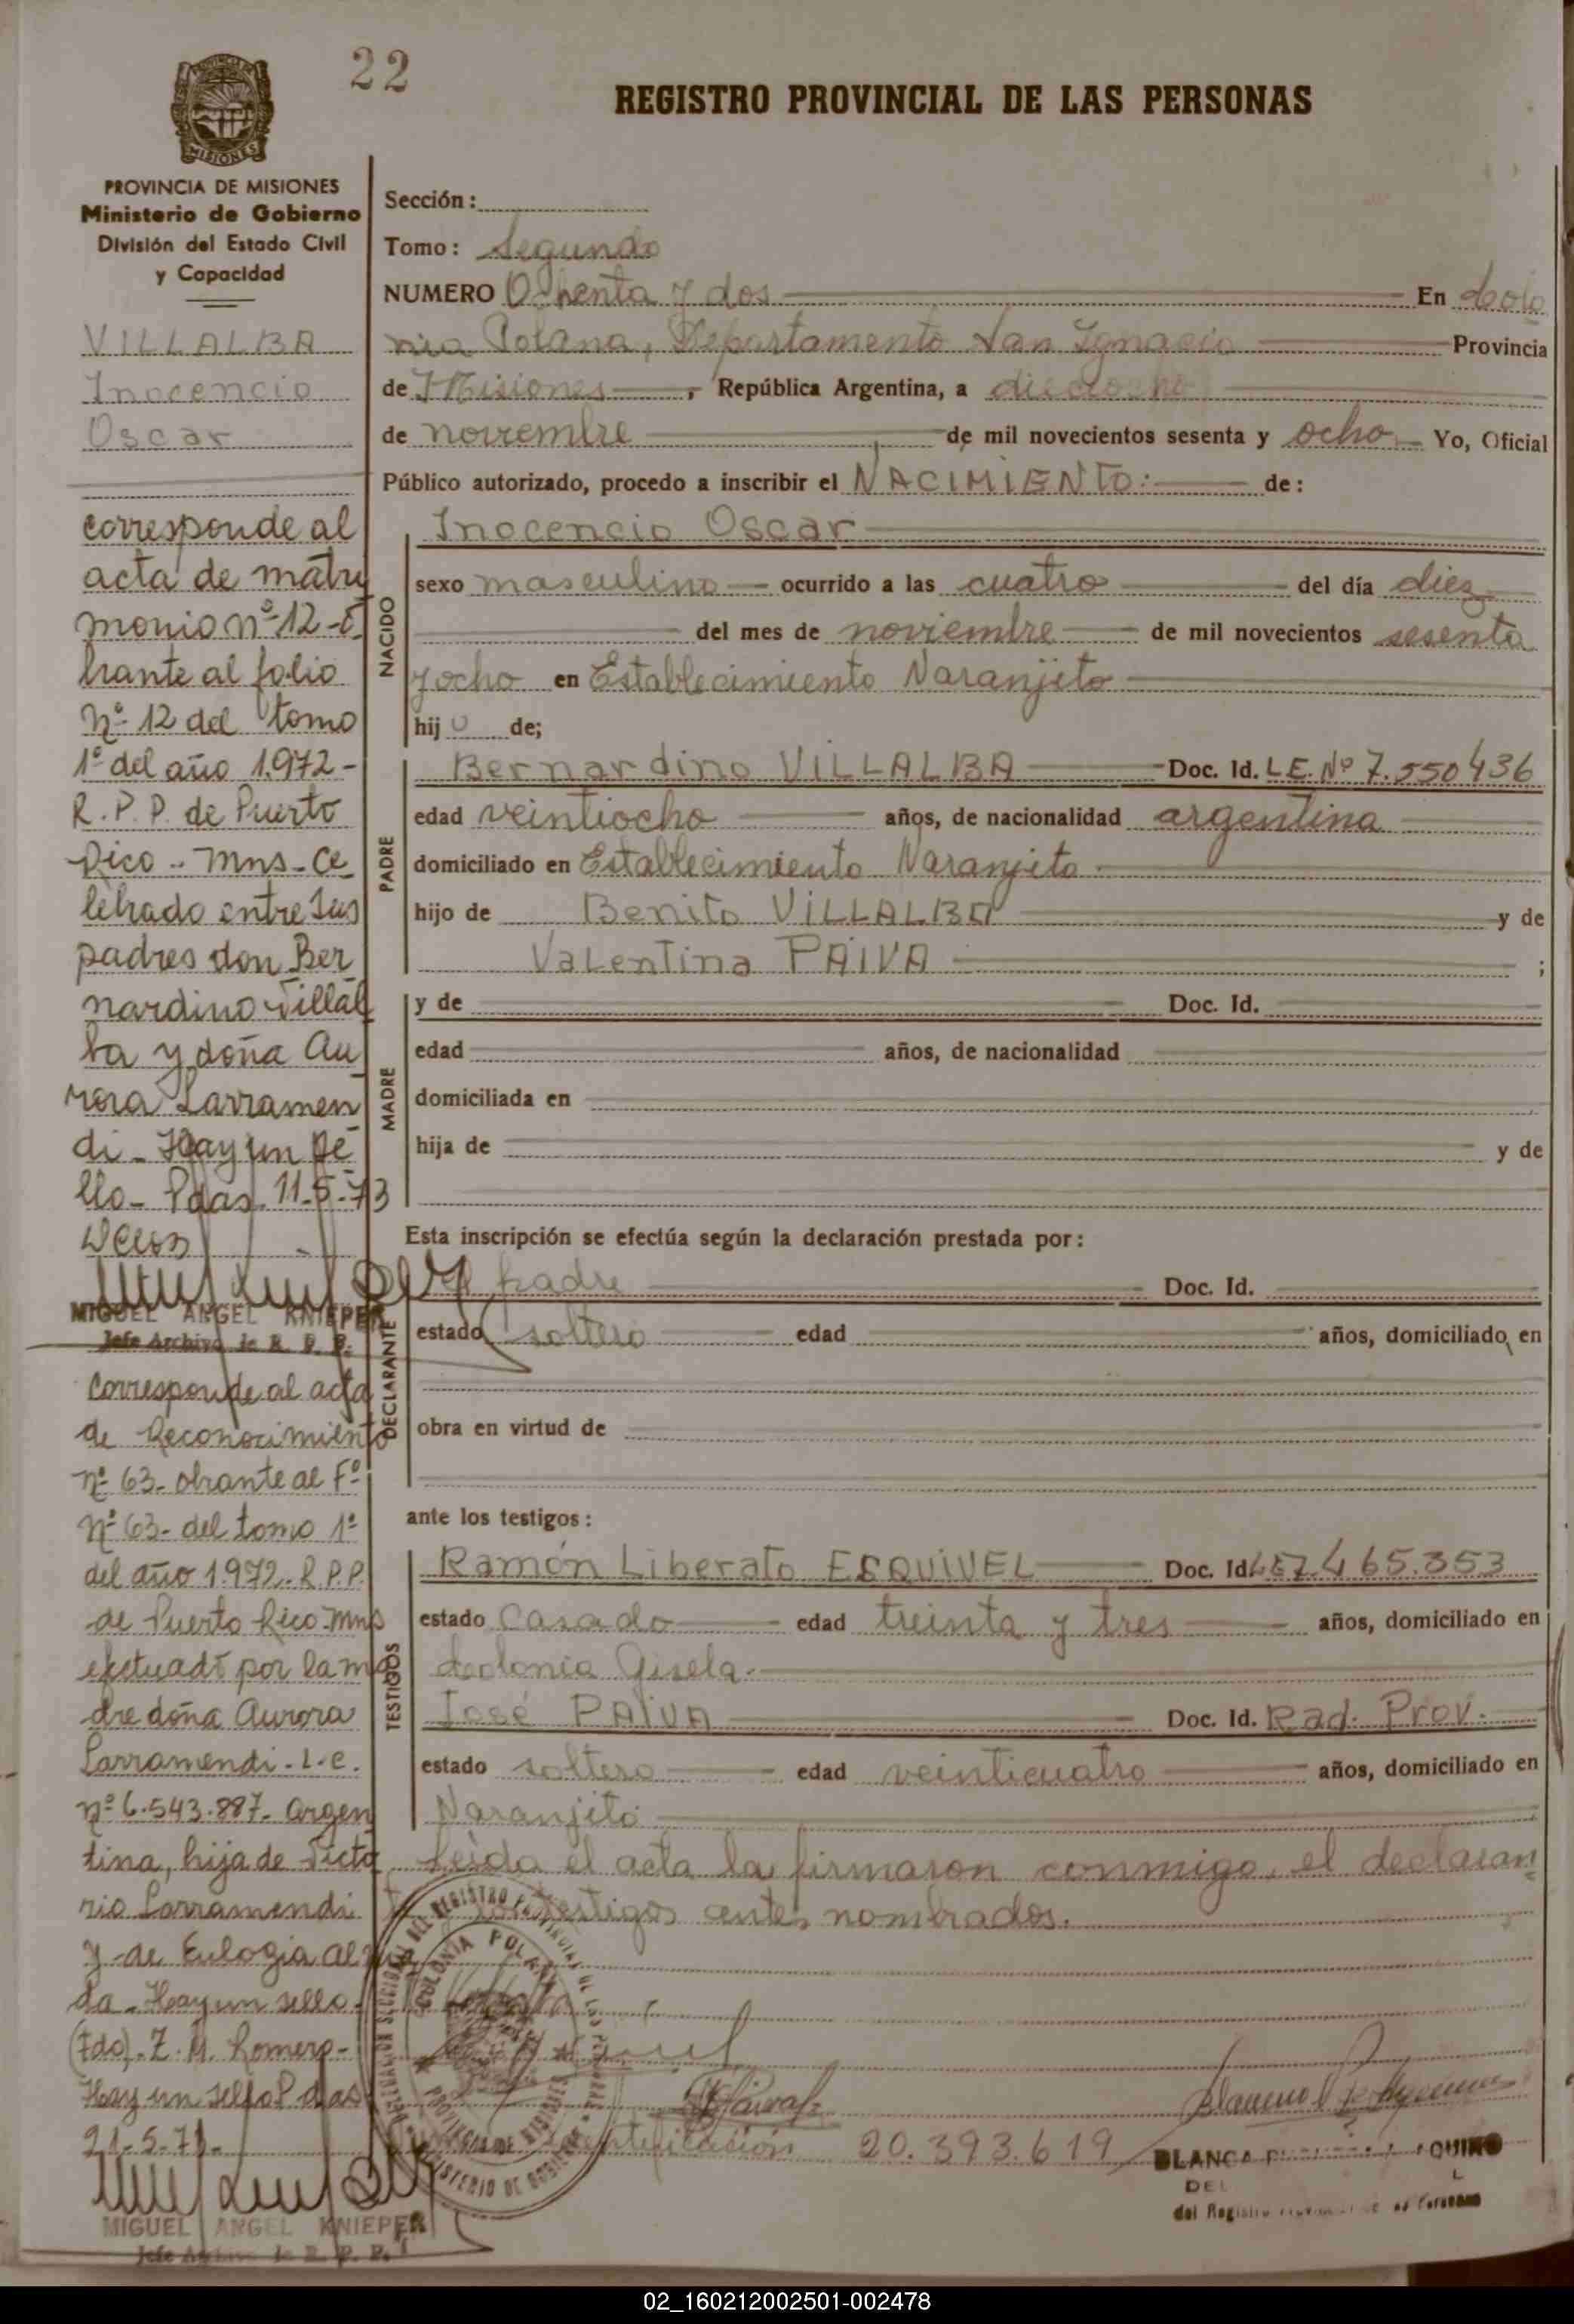 22
REGISTRO PROVINCIAL DE LAS PERSONAS
MISIONES
PROVINCIA DE MISIONES
Ministerio de Gobierno
División del Estado Civil
y Capacidad
VILLALBA
Inocencio
Oscar
corresponde al
acta de matri
monio nº 12-o
brante al folio
Nº 12 del tomo
1º del año 1.972-
R.P.P. de Puerto
Rico - Mns - Ce
lebrado entre sus
padres don Ber
nardino Villal
ba y doña Au
rora Larramen
di - Hay un se
llo - Pdas. 11-5-73
MIGUEL ANGEL KNIEPER
Jefe Archivo de R. P. P.
Corresponde al acta
de Reconocimiento
nº 63- obrante al Fº
Nº 63- del tomo 1º
del año 1972- R.P.P.
de Puerto Rico - Mns
efectuado por la ma
dre doña Aurora
Larramendi - L.C.
nº 6.543.887- Argen
tina, hija de Victo
rio Larramendi
y de Eulogia
da - Hay un sello -
(Fdo) - Z. M. Romero -
Hay un sello Pdas
21-5-71-
MIGUEL ANGEL KNIEPER
Jefe Archivo de R. P. P.
Sección:
Tomo: Segundo
NUMERO Ochenta y dos En Colo
nia Polana, Departamento San Ignacio Provincia
de Misiones, República Argentina, a dieciocho
de noviembre de mil novecientos sesenta y ocho Yo, Oficial
Público autorizado, procedo a inscribir el NACIMIENTO: de:
NACIDO
Inocencio Oscar
sexo masculino ocurrido a las cuatro del día diez
del mes de noviembre de mil novecientos sesenta
y ocho en Establecimiento Naranjito
hijo de;
PADRE
Bernardino VILLALBA Doc. Id. L.E. Nº 7.550436
edad veintiocho años, de nacionalidad argentina
domiciliado en Establecimiento Naranjito
hijo de Benito VILLALBA y de
Valentina PAIVA ;
MADRE
y de Doc. Id.
edad años, de nacionalidad
domiciliada en
hija de y de
Esta inscripción se efectúa según la declaración prestada por:
DECLARANTE
El padre Doc. Id.
estado soltero edad años, domiciliado en
obra en virtud de
ante los testigos:
TESTIGOS
Ramón Liberato ESQUIVEL Doc. Id. LE7.465.353
estado Casado edad treinta y tres años, domiciliado en
Colonia Gisela.
José PAIVA Doc. Id. Rad. Prov.
estado soltero edad veinticuatro años, domiciliado en
Naranjito
Leida el acta la firmaron conmigo, el declaran
te y los testigos antes nombrados.
COLONIA POLANA
PROVINCIA DE MISIONES
MINISTERIO DE GOBIERNO
20.393.619
BLANCA
QUIÑO
DEL
del Registro
02_160212002501-002478